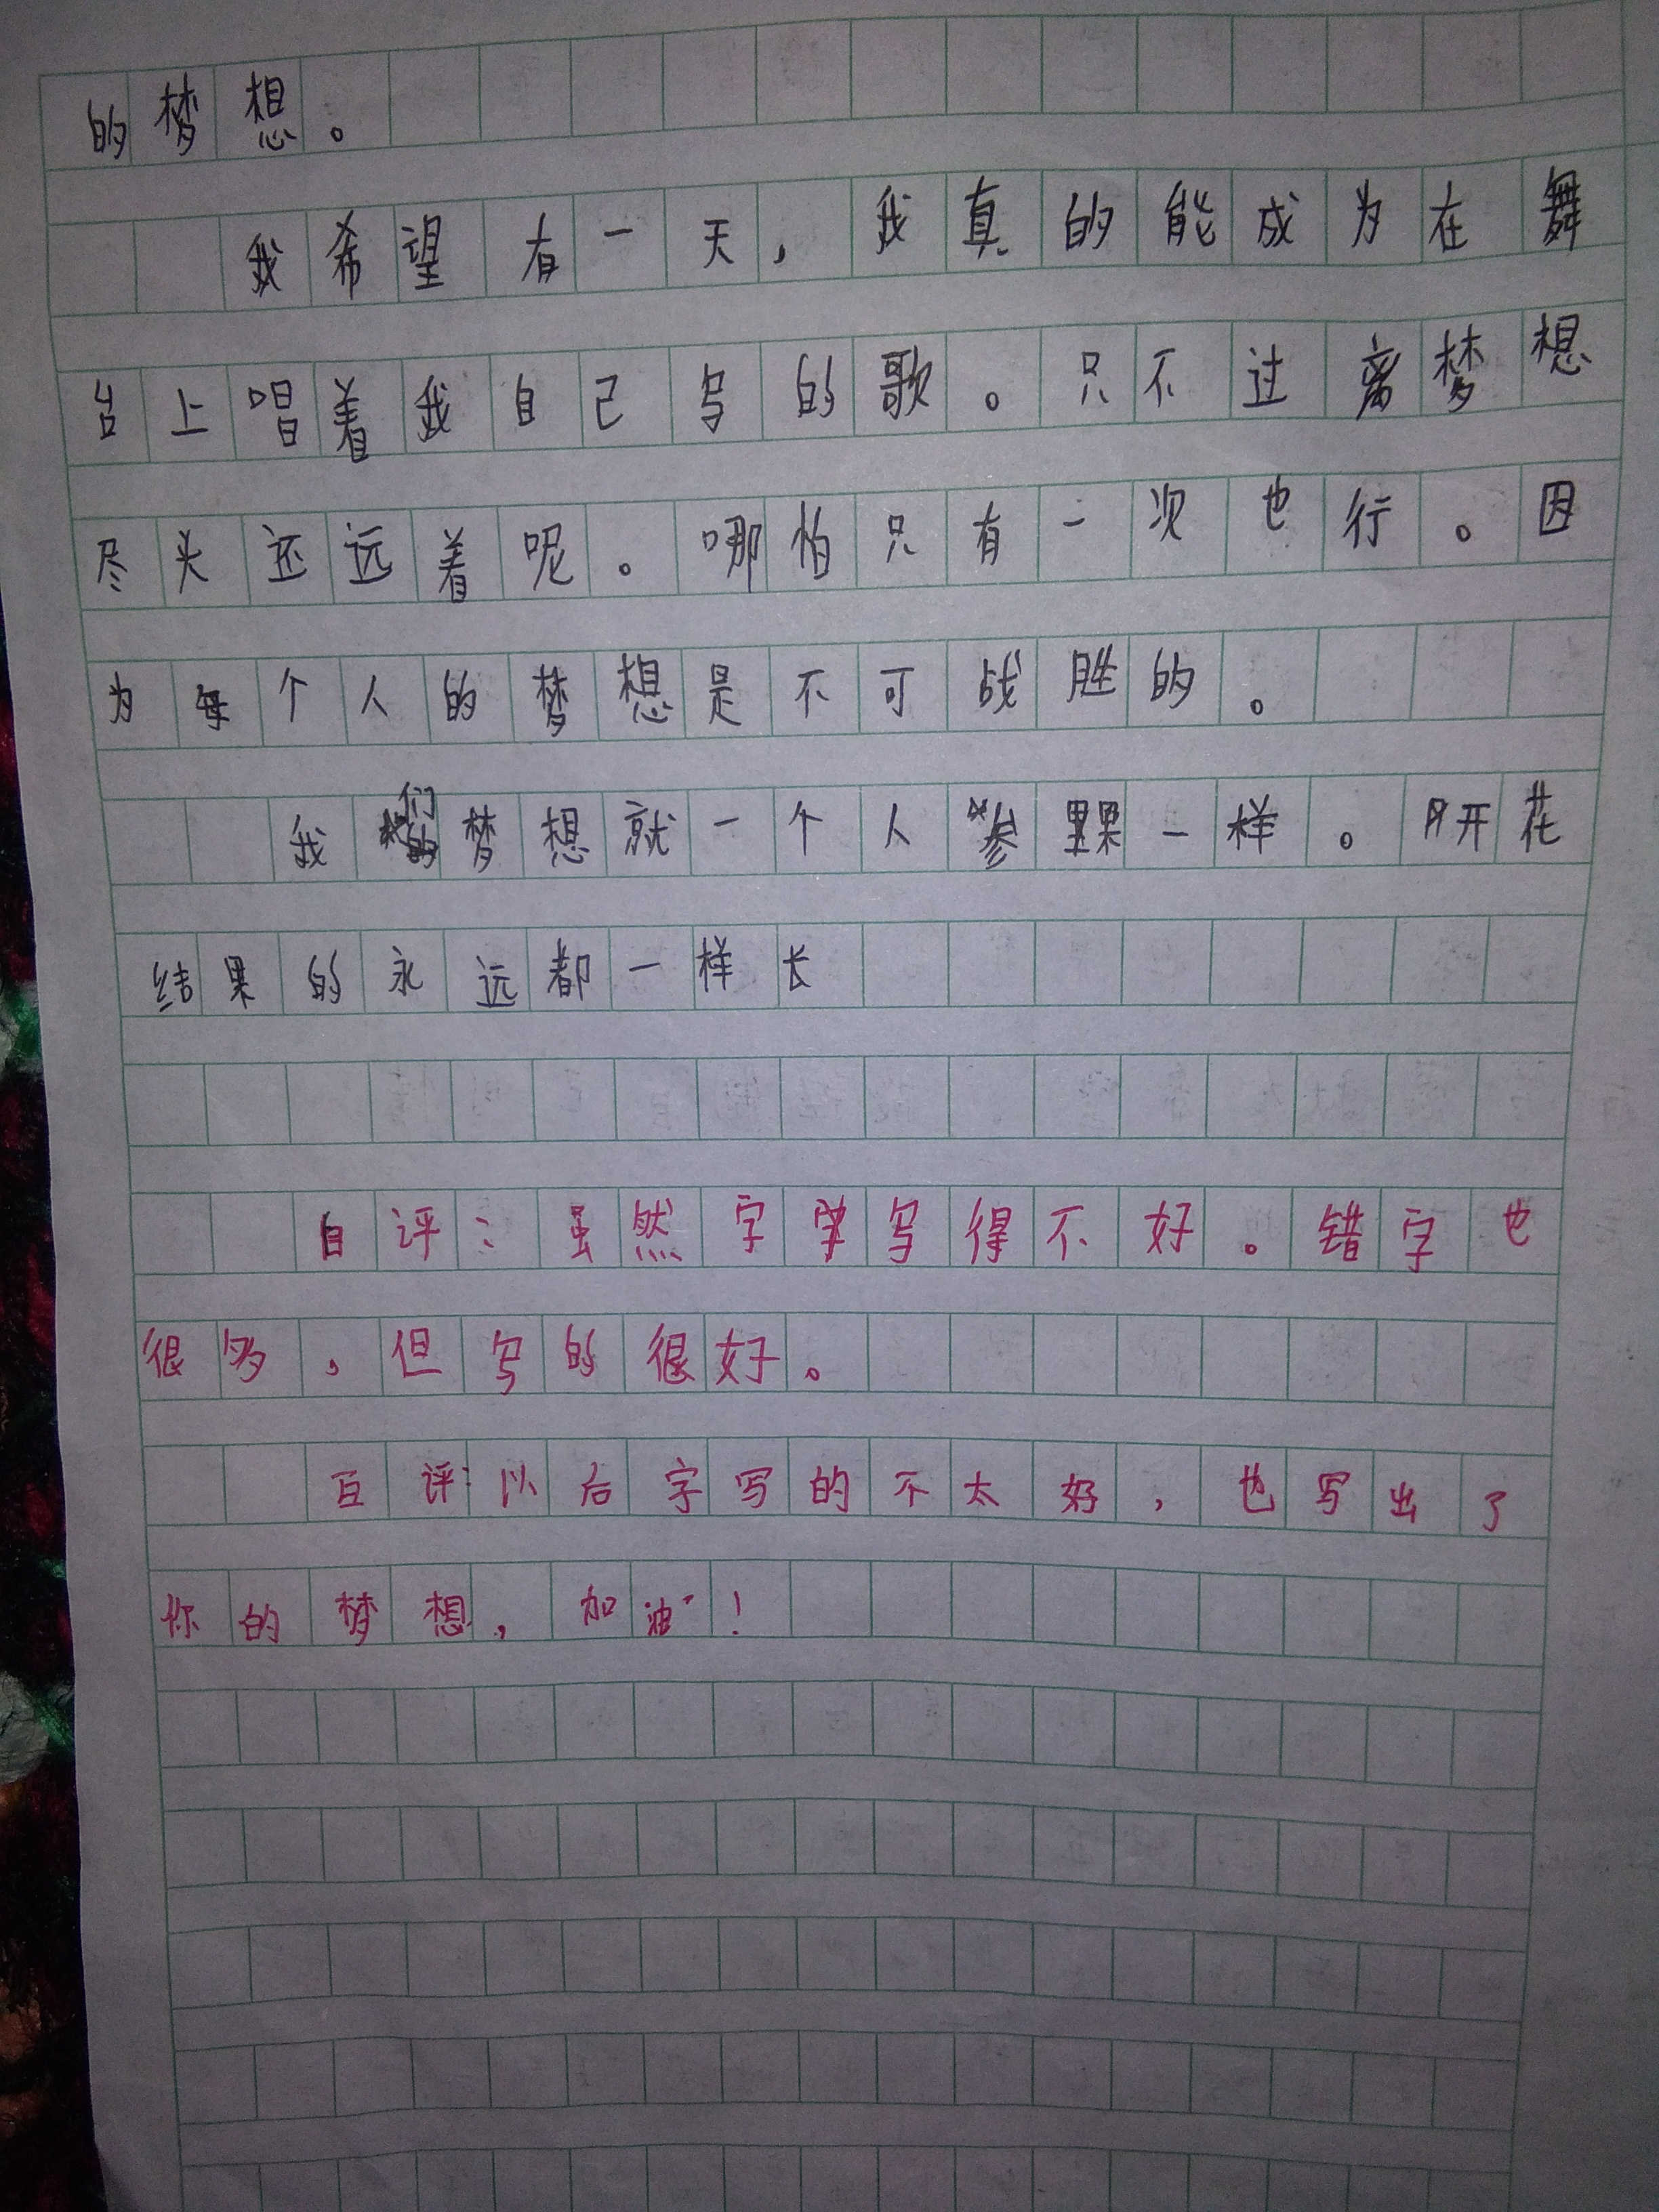 的梦想。
我希望有一天，我真的能成为在舞
台上唱着我自己写的歌。只不过离梦想
尽头还远着呢。哪怕只有一次也行。因
为每个人的梦想是不可战胜的。
我们的梦想就一个人参果一样。开花
结果的永远都一样长
自评：虽然字写得不好。错字也
很多，但写的很好。
互评：以后字写的不太好，也写出了
你的梦想，加油！